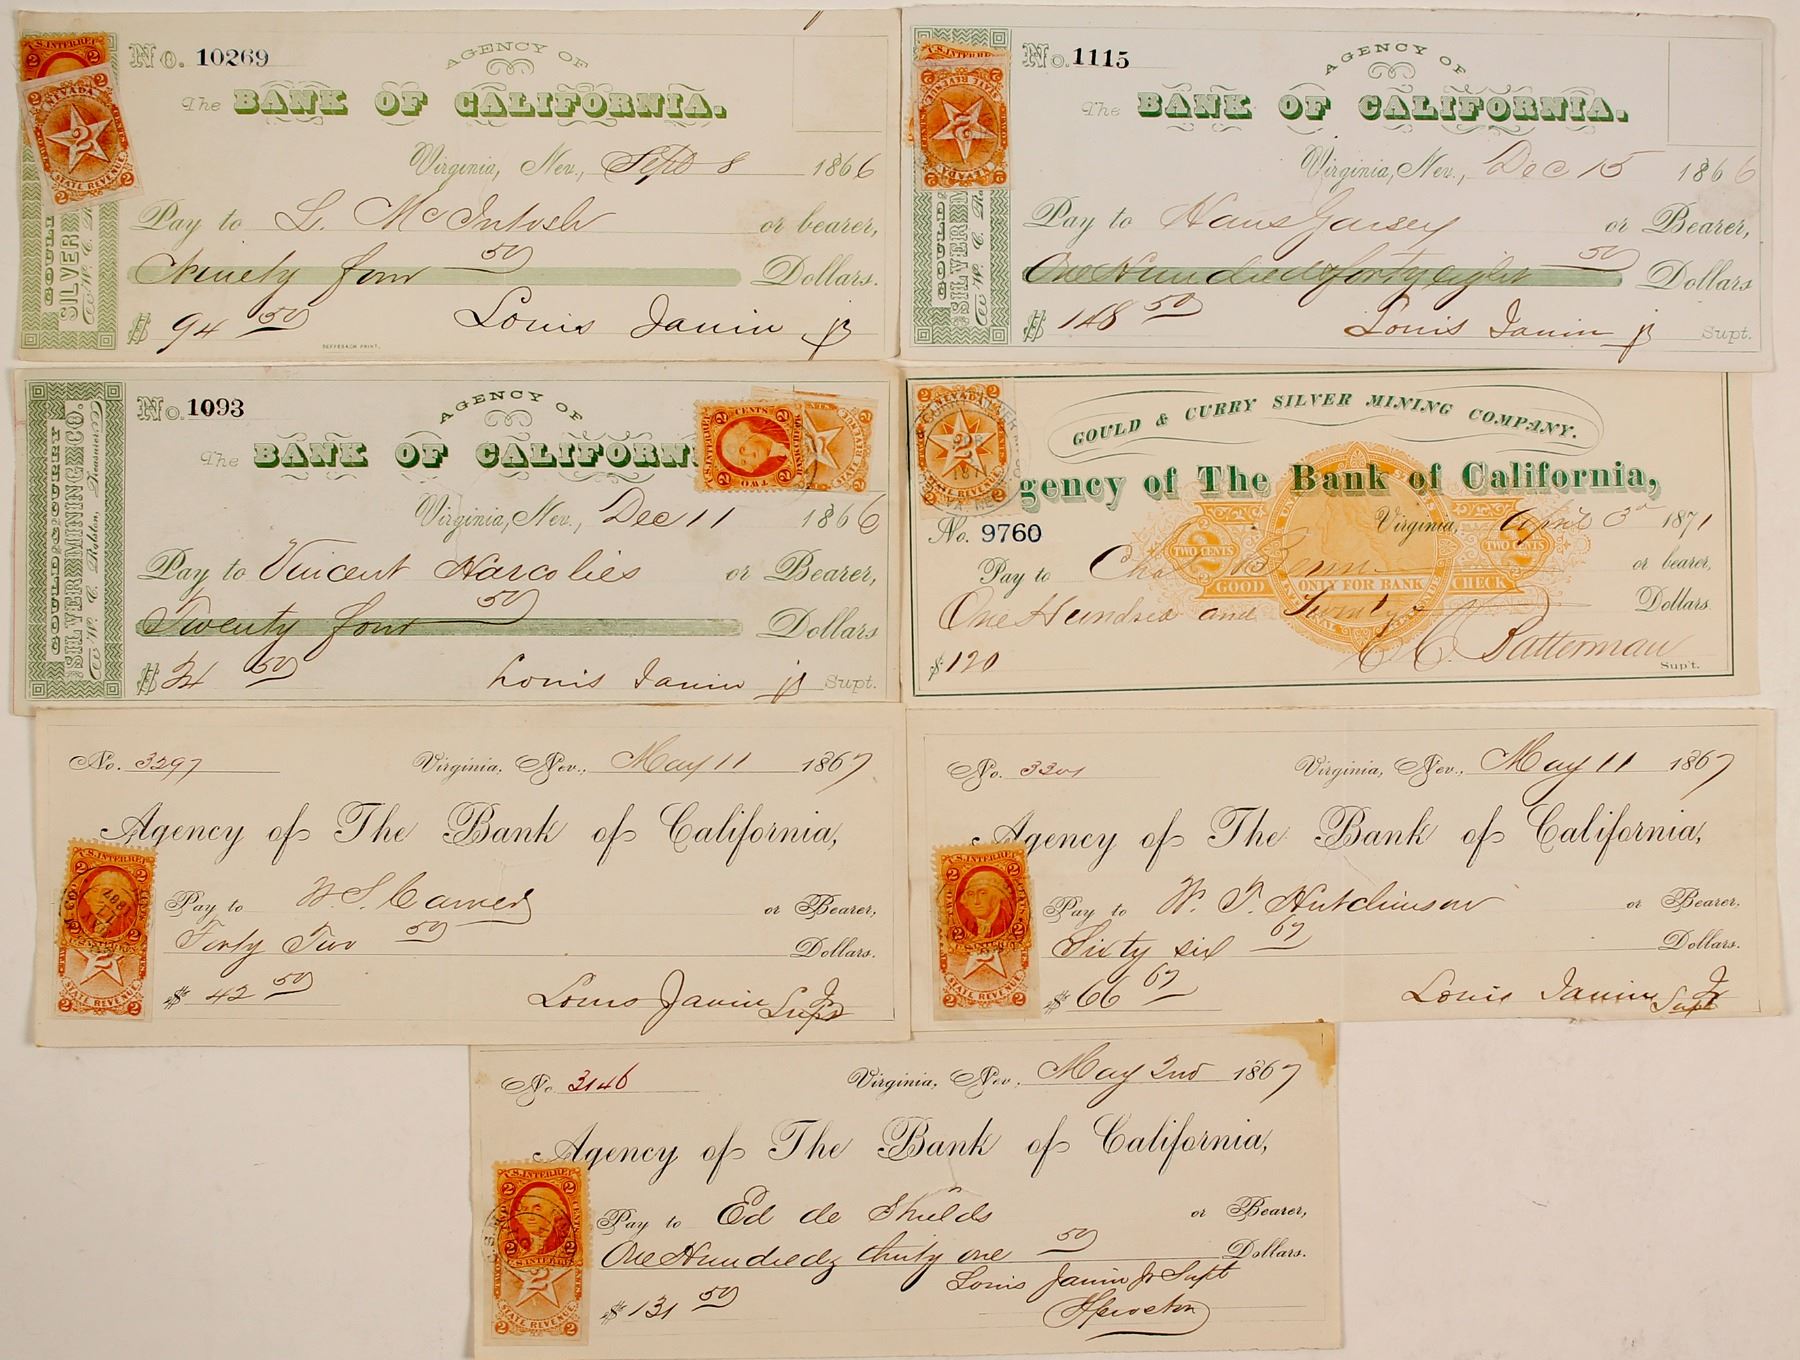 No. 10269
AGENCY OF
The BANK OF CALIFORNIA.
Virginia, Nev., Sept 8 1866
Pay to L. McIntosh or bearer,
Ninety four 50 Dollars.
$ 94 50 Louis Janin jr
DEFFEBACH PRINT.
GOULD
SILVER
W. C.
U.S. INTER. REV.
NEVADA
2
STATE REVENUE
No. 1115
AGENCY OF
The BANK OF CALIFORNIA.
Virginia, Nev., Dec 15 1866
Pay to Hans or Bearer,
One Hundred & forty eight 50 Dollars
$ 148 50 Louis Janin jr Supt.
GOULD
SILVER M
W. C.
U.S. INTER. REV.
STATE REVENUE
2
NEVADA
No. 1093
AGENCY OF
The BANK OF CALIFORN
Virginia, Nev., Dec 11 1866
Pay to Vincent Harcolies or Bearer,
Twenty four 50 Dollars
$ 24 50 Louis Janin jr Supt.
GOULD & CURRY
SILVER MINING CO.
W. C. Ralston, Treasurer
U.S. INTER. REV.
TWO CENTS
STATE REVENUE
GOULD & CURRY SILVER MINING COMPANY.
gency of The Bank of California,
No. 9760 Virginia, April 3rd 1871
Pay to Chas or bearer,
One Hundred and Twenty Dollars
$ 120 C. C. Batterman Sup't.
TWO CENTS TWO CENTS
GOOD ONLY FOR BANK CHECK
NEVADA
2
STATE REVENUE
No. 3297 Virginia, Nev., May 11 1867
Agency of The Bank of California,
Pay to W. S. or Bearer,
Forty Two 50 Dollars.
$ 42 50 Louis Janin Jr Supt
U.S. INTER. REV.
2
STATE REVENUE
No. 3301 Virginia, Nev., May 11 1867
Agency of The Bank of California,
Pay to W. T. Hutchinson or Bearer.
Sixty six 67 Dollars.
$ 66 67 Louis Janin Jr Supt
U.S. INTER. REV.
2
STATE REVENUE
No. 3146 Virginia, Nev. May 2nd 1867
Agency of The Bank of California,
Pay to Ed de Shields or Bearer,
One Hundred & thirty one 50 Dollars.
$ 131 50 Louis Janin Jr Supt
U.S. INTER. REV.
2
STATE REVENUE